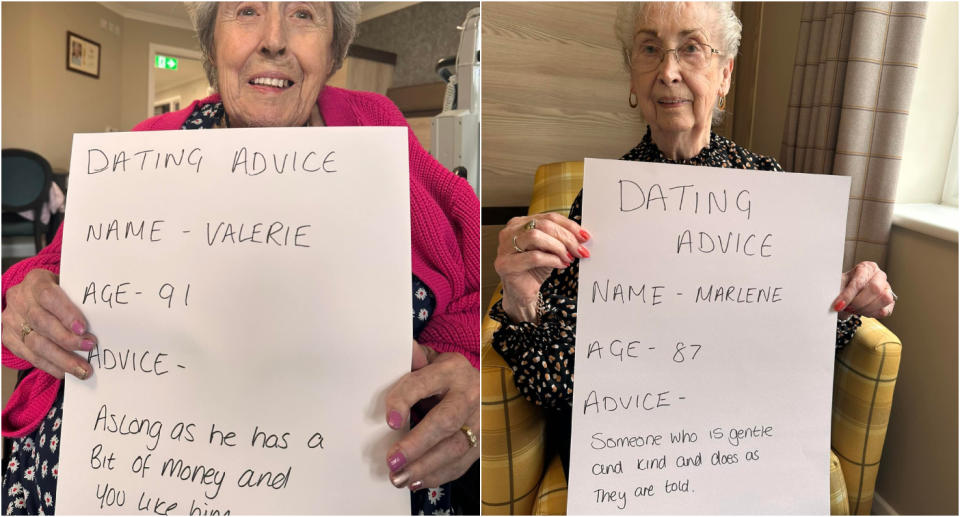 DATING ADVICE
NAME - VALERIE
AGE - 91
ADVICE -
Aslong as he has a
Bit of money and
you like him
DATING
ADVICE
NAME - MARLENE
AGE - 87
ADVICE -
Someone who is gentle
and kind and does as
They are told.